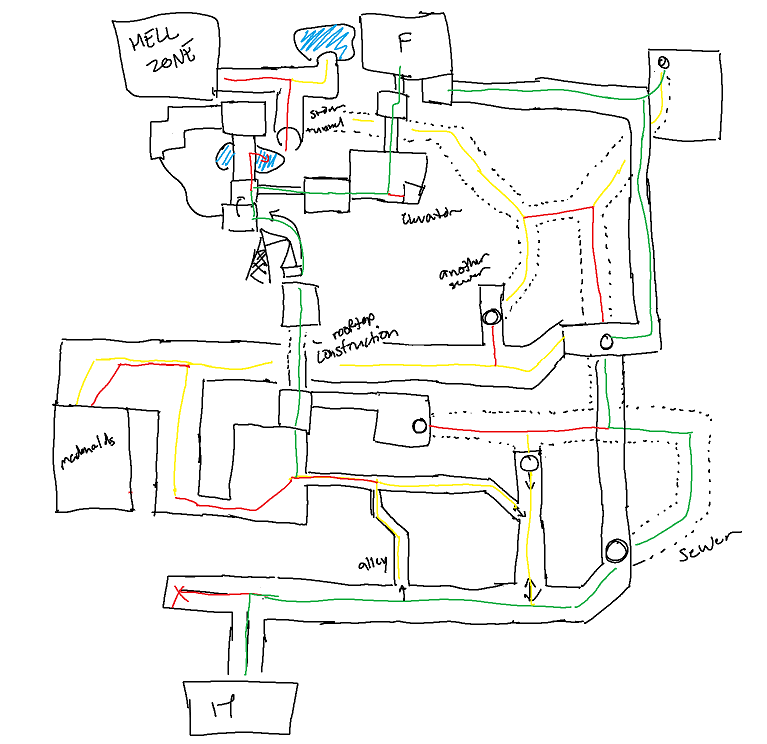 HELL
ZONE
F
tunnel
elevator
another
sewer
rooftop
construction
mcdonalds
alley
sewer